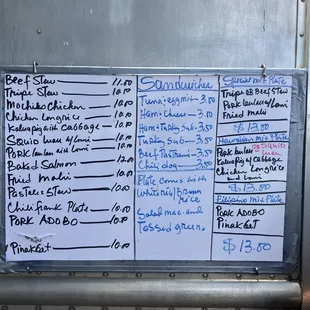 Beef Stew 11.00
Tripe Stew 10.00
Mochiko Chicken 10.00
Chicken Longrice 10.00
Kalua pig with Cabbage 10.00
Squid Luau w/Lomi
Pork Lau Lau with Lomi 10.00
Baked Salmon 12.00
Fried Mahi 10.00
Pasteles Stew 10.00
Chili frank Plate 10.00
PORK ADOBO 10.00
PINAKBET 10.00
Sandwiches
Tuna & egg mix 3.00
Ham & Cheese 3.00
Ham & Turkey Sub 3.50
Turkey Sub 3.50
Beef Pastrami 3.50
Chili dog 3.50
Plate comes with
white rice/brown
rice
Salad mac and
Tossed green
Special Mix Plate
Tripe or Beef Stew
Pork laulau w/Lomi
Fried Mahi
$13.00
Hawaiian Mix Plate
Pork laulau or SQUID
Luau
Kalua pig Cabbage
Chicken Longrice
and Lomi
$13.00
Filipino Mix Plate
Pork ADOBO
Pinakbet
$13.00